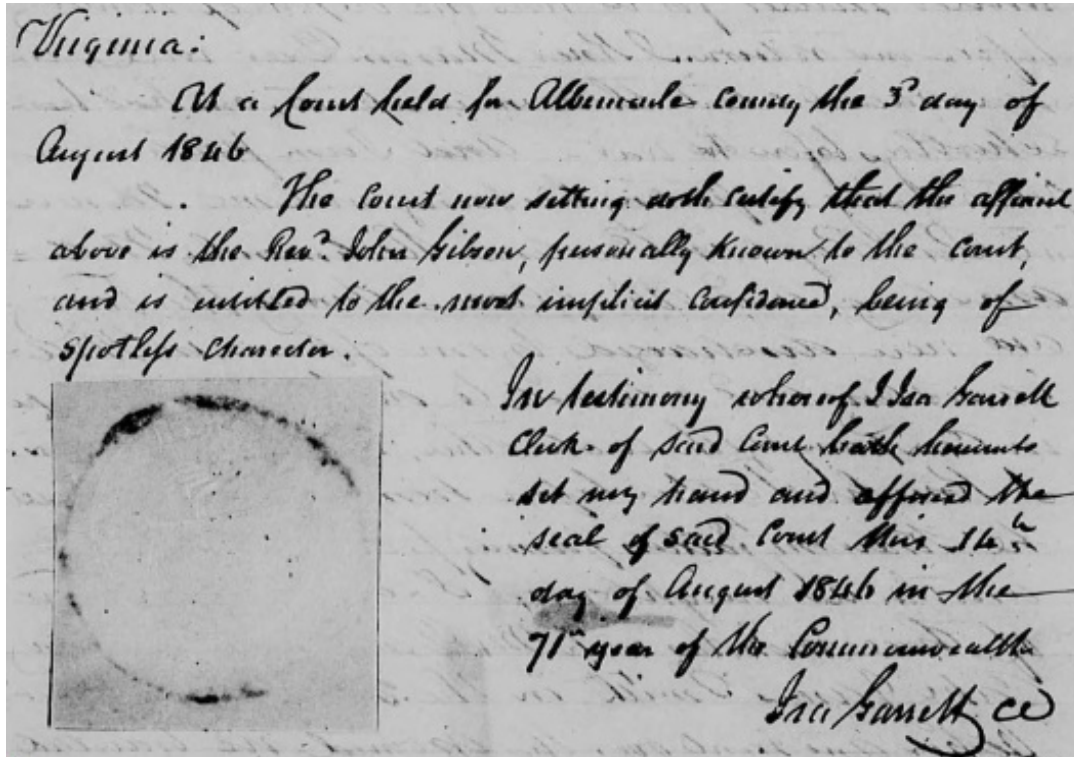 Virginia:
At a Court held for Albemarle County the 3d day of
August 1846
The Court now setting doth certify that the affiant
above is the Revd. John Gibson, personally known to the Court,
and is entitled to the most implicit confidence, being of
spotless character.
In testimony whereof I Ira Garrett
Clerk of said Court hath hereunto
set my hand and affixed the
seal of said Court this 14th
day of August 1846 in the
71st year of the Commonwealth
Ira Garrett CC